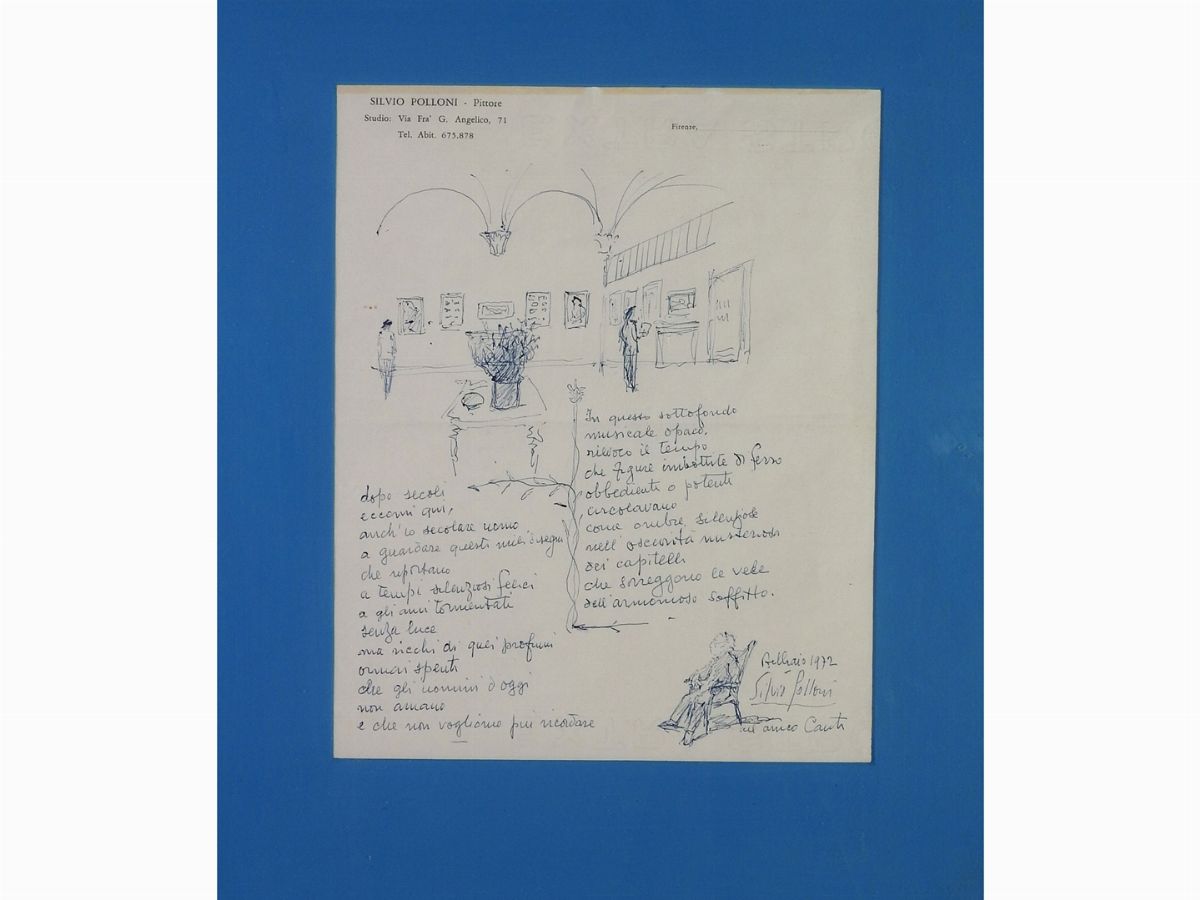 SILVIO POLLONI - Pittore
Studio: Via Fra' G. Angelico, 71
Tel. Abit. 675.878
Firenze,
dopo secoli
eccomi qui,
anch'io secolare uomo
a guardare questi miei disegni
che riportano
a tempi silenziosi felici
a gli anni tormentati
senza luce
ma ricchi di quei profumi
ormai spenti
che gli uomini d'oggi
non amano
e che non vogliamo più ricordare
In questo sottofondo
musicale opaco,
rievoco il tempo
che figure imbottite di ferro
obbedienti o potenti
circolavano
come ombre silenziose
nell'oscurità misteriosa
dei capitelli
che sorreggono le vele
dell'armonioso soffitto.
Febbraio 1972
Silvio Polloni
all'amico Canti